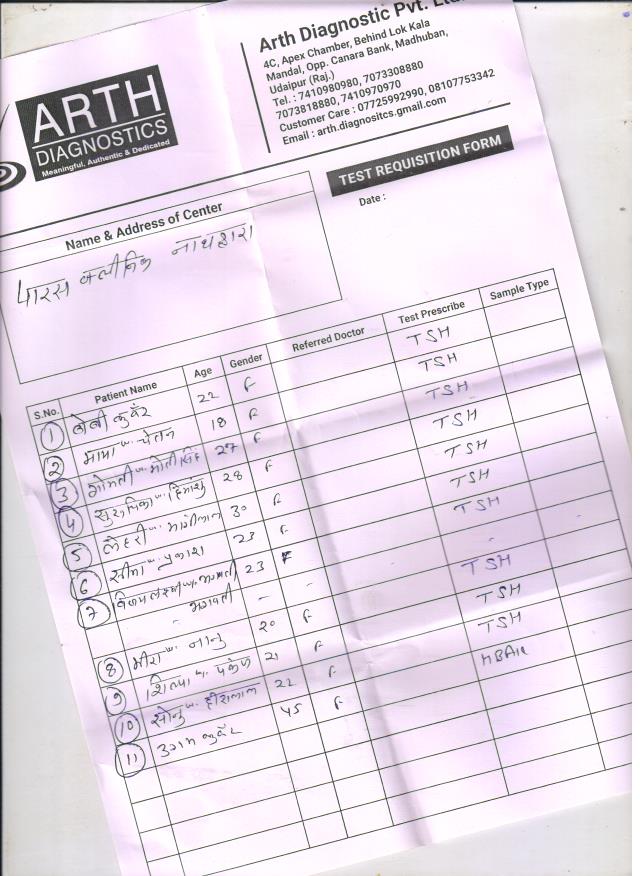 Arth Diagnostic Pvt. Ltd.
4C, Apex Chamber, Behind Lok Kala
Mandal, Opp. Canara Bank, Madhuban,
Udaipur (Raj.)
Tel. : 7410980980, 7073308880
7073818880, 7410970970
Customer Care : 07725992990, 08107753342
Email : arth.diagnositcs.gmail.com
ARTH
DIAGNOSTICS
Meaningful, Authentic & Dedicated
TEST REQUISITION FORM
Name & Address of Center
Date :
पारस क्लीनिक नाथद्वारा
S.No. Patient Name Age Gender Referred Doctor Test Prescribe Sample Type
1 बेबी कुवँर 22 F TSH
2 माया w. चेतन 18 F TSH
3 गोमती w. मोती सिंह 27 F TSH
4 w. हिमांशु 28 F TSH
5 लेहरी w. मांगीलाल 30 F TSH
6 सीमा w. प्रकाश 23 F TSH
7 23 F TSH
" भगवती - - -
8 मीरा w. नानु 20 F TSH
9 शिल्पा w. पंकज 21 F TSH
10 सोनु w. हीरालाल 22 F TSH
11 उगम कुवँर 45 F HBA1c